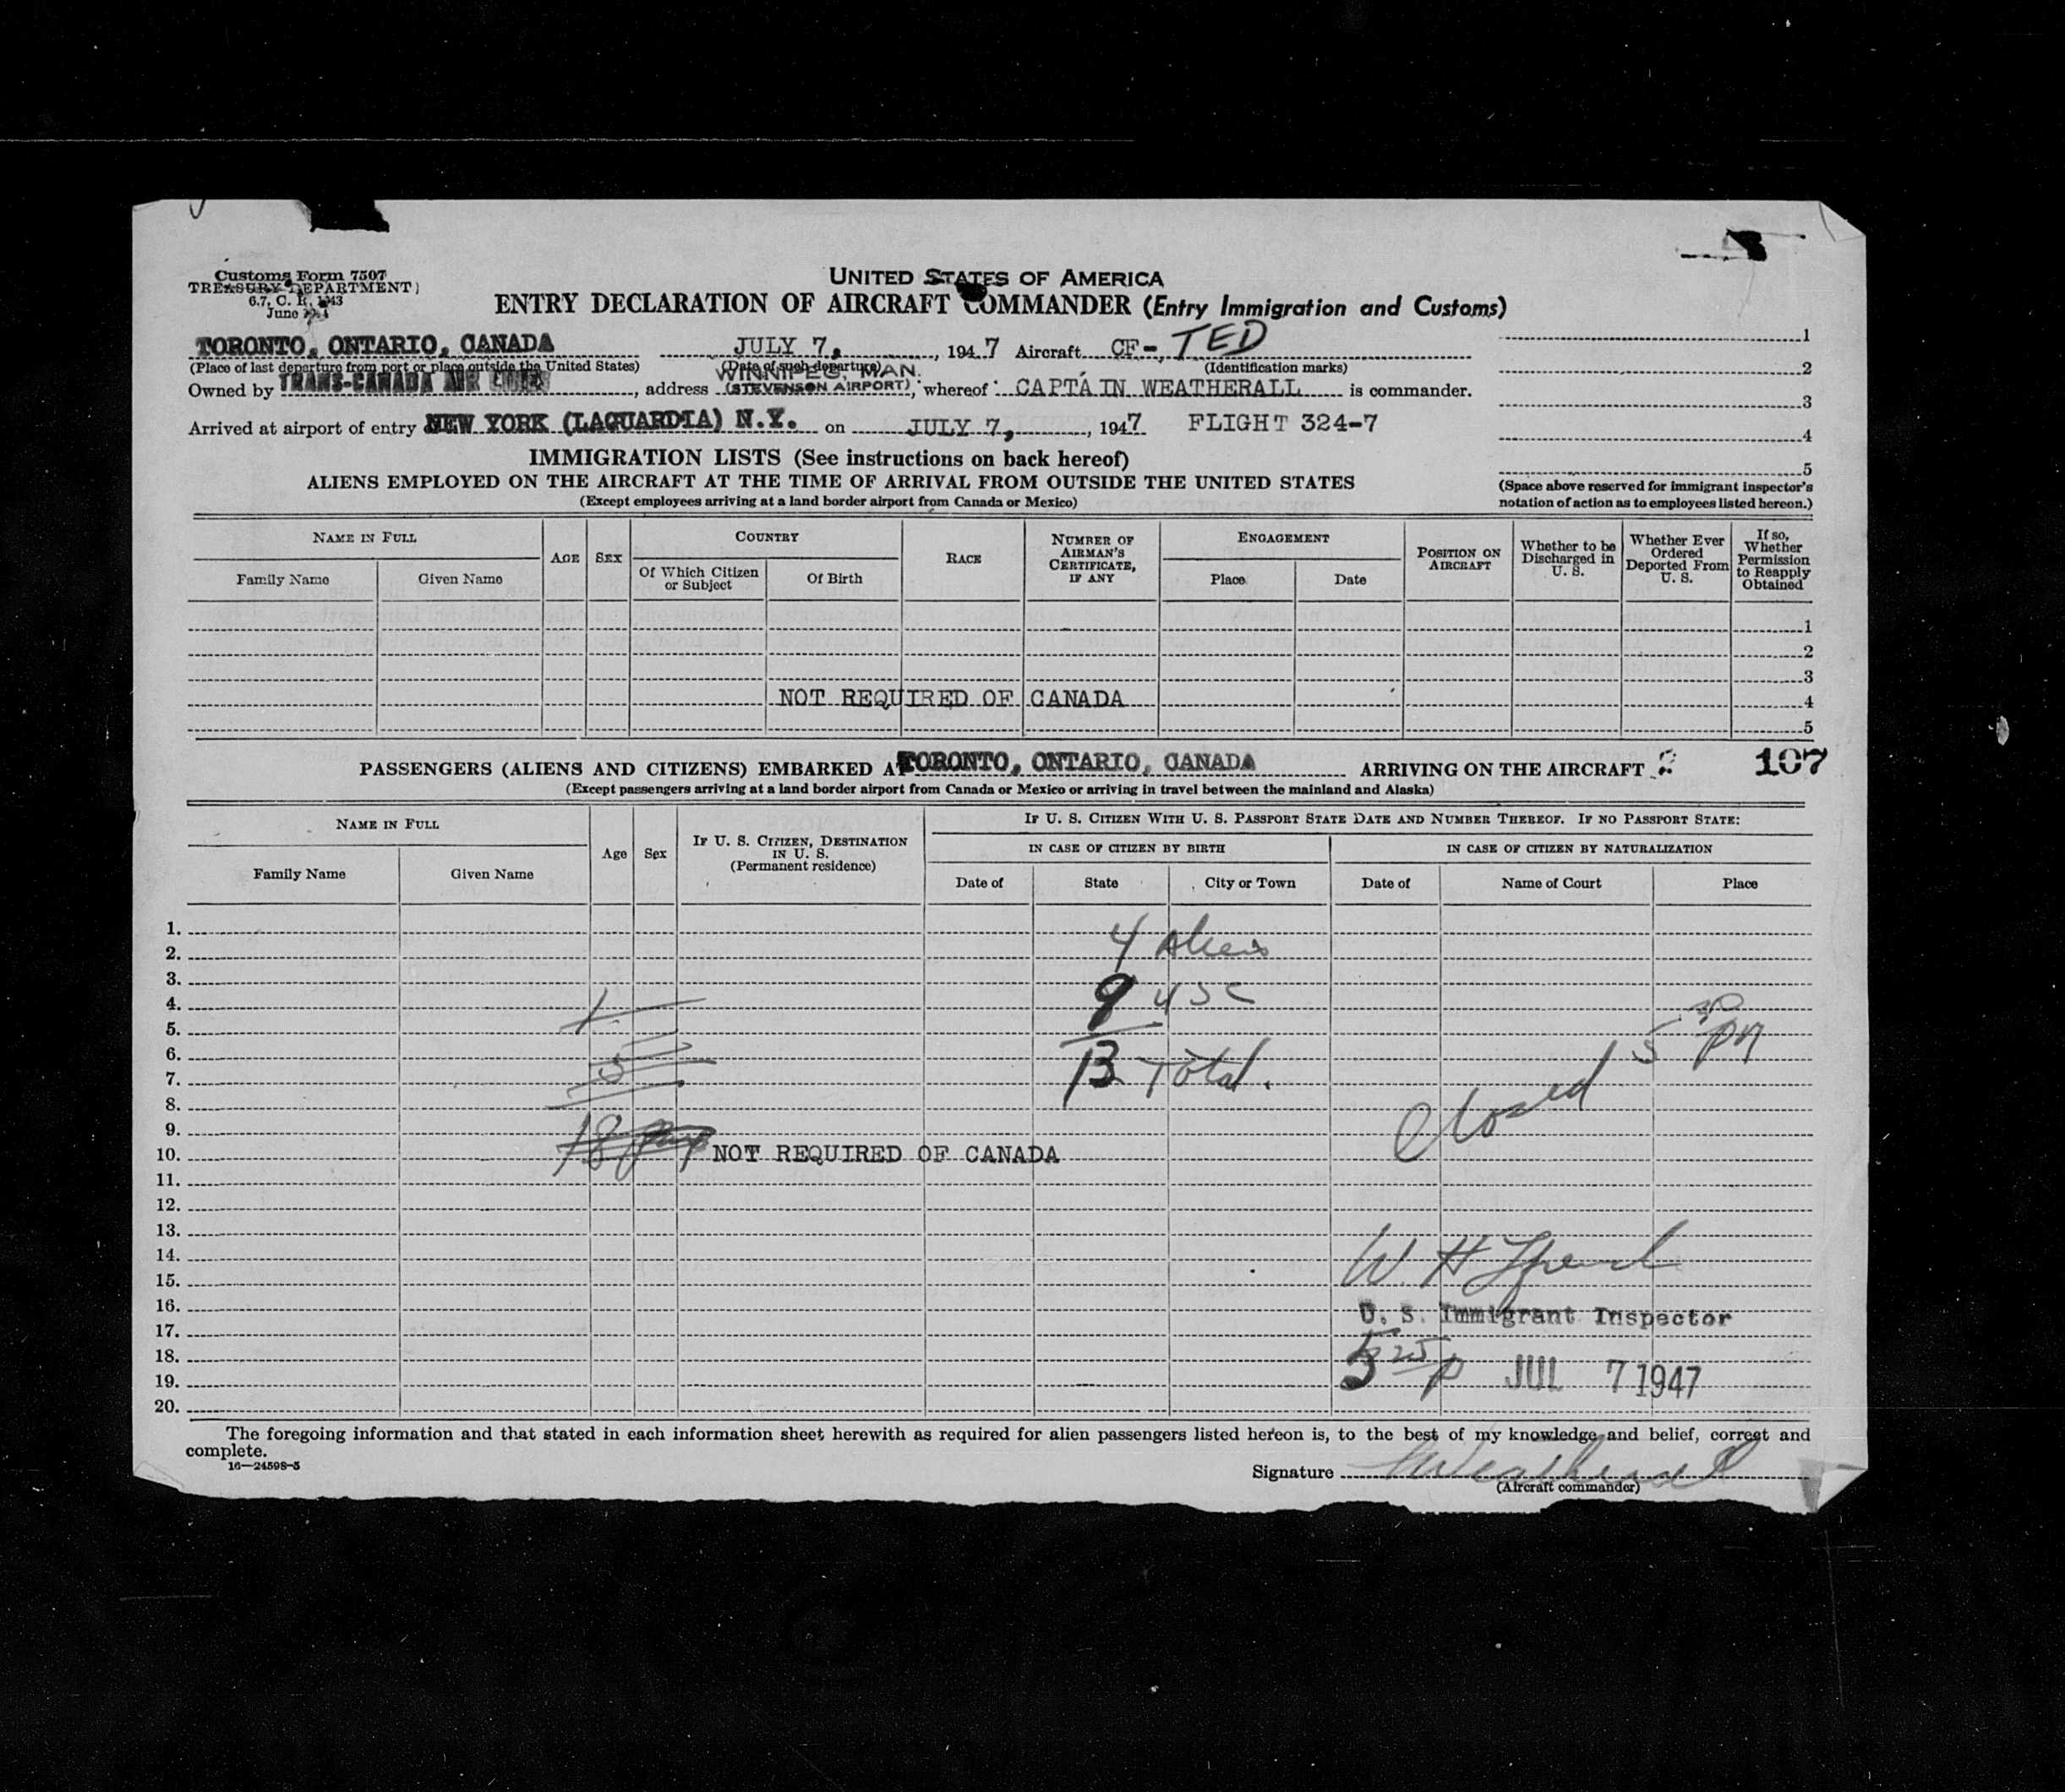 Customs Form 7507
TREASURY DEPARTMENT
6.7, C. R. 1943
June
UNITED STATES OF AMERICA
ENTRY DECLARATION OF AIRCRAFT COMMANDER (Entry Immigration and Customs)
TORONTO, ONTARIO, CANADA JULY 7, 1947 Aircraft CF-TED 1
(Place of last departure from port or place outside the United States) (Date of such departure) (Identification marks) 2
WINNIPEG, MAN.
Owned by TRANS-CANADA AIR LINES, address (STEVENSON AIRPORT), whereof CAPTAIN WEATHERALL is commander.
3
Arrived at airport of entry NEW YORK (LAGUARDIA) N.Y. on JULY 7, 1947 FLIGHT 324-7
4
IMMIGRATION LISTS (See instructions on back hereof)
5
ALIENS EMPLOYED ON THE AIRCRAFT AT THE TIME OF ARRIVAL FROM OUTSIDE THE UNITED STATES
(Except employees arriving at a land border airport from Canada or Mexico)
(Space above reserved for immigrant inspector's
notation of action as to employees listed hereon.)
NAME IN FULL
Family Name Given Name
AGE
SEX
COUNTRY
Of Which Citizen or Subject
Of Birth
RACE
NUMBER OF AIRMAN'S CERTIFICATE, IF ANY
ENGAGEMENT
Place Date
POSITION ON AIRCRAFT
Whether to be Discharged in U. S.
Whether Ever Ordered Deported From U. S.
If so, Whether Permission to Reapply Obtained
1
2
3
NOT REQUIRED OF CANADA 4
5
PASSENGERS (ALIENS AND CITIZENS) EMBARKED AT TORONTO, ONTARIO, CANADA ARRIVING ON THE AIRCRAFT 2 107
(Except passengers arriving at a land border airport from Canada or Mexico or arriving in travel between the mainland and Alaska)
NAME IN FULL
Family Name Given Name
Age
Sex
IF U. S. CITIZEN, DESTINATION IN U. S.
(Permanent residence)
IF U. S. CITIZEN WITH U. S. PASSPORT STATE DATE AND NUMBER THEREOF. IF NO PASSPORT STATE:
IN CASE OF CITIZEN BY BIRTH IN CASE OF CITIZEN BY NATURALIZATION
Date of State City or Town Date of Name of Court Place
1.
2. 4 Aliens
3.
4. 9 USC
5.
6. 5 30 PM
7. 5 13 Total.
8. Closed
9.
10. 18 NOT REQUIRED OF CANADA
11.
12.
13.
14. W. H.
15.
16. U. S. Immigrant Inspector
17.
18. 5 25 p JUL 7 1947
19.
20.
The foregoing information and that stated in each information sheet herewith as required for alien passengers listed hereon is, to the best of my knowledge and belief, correct and
complete.
16—24598-5
Signature Weatherall
(Aircraft commander)